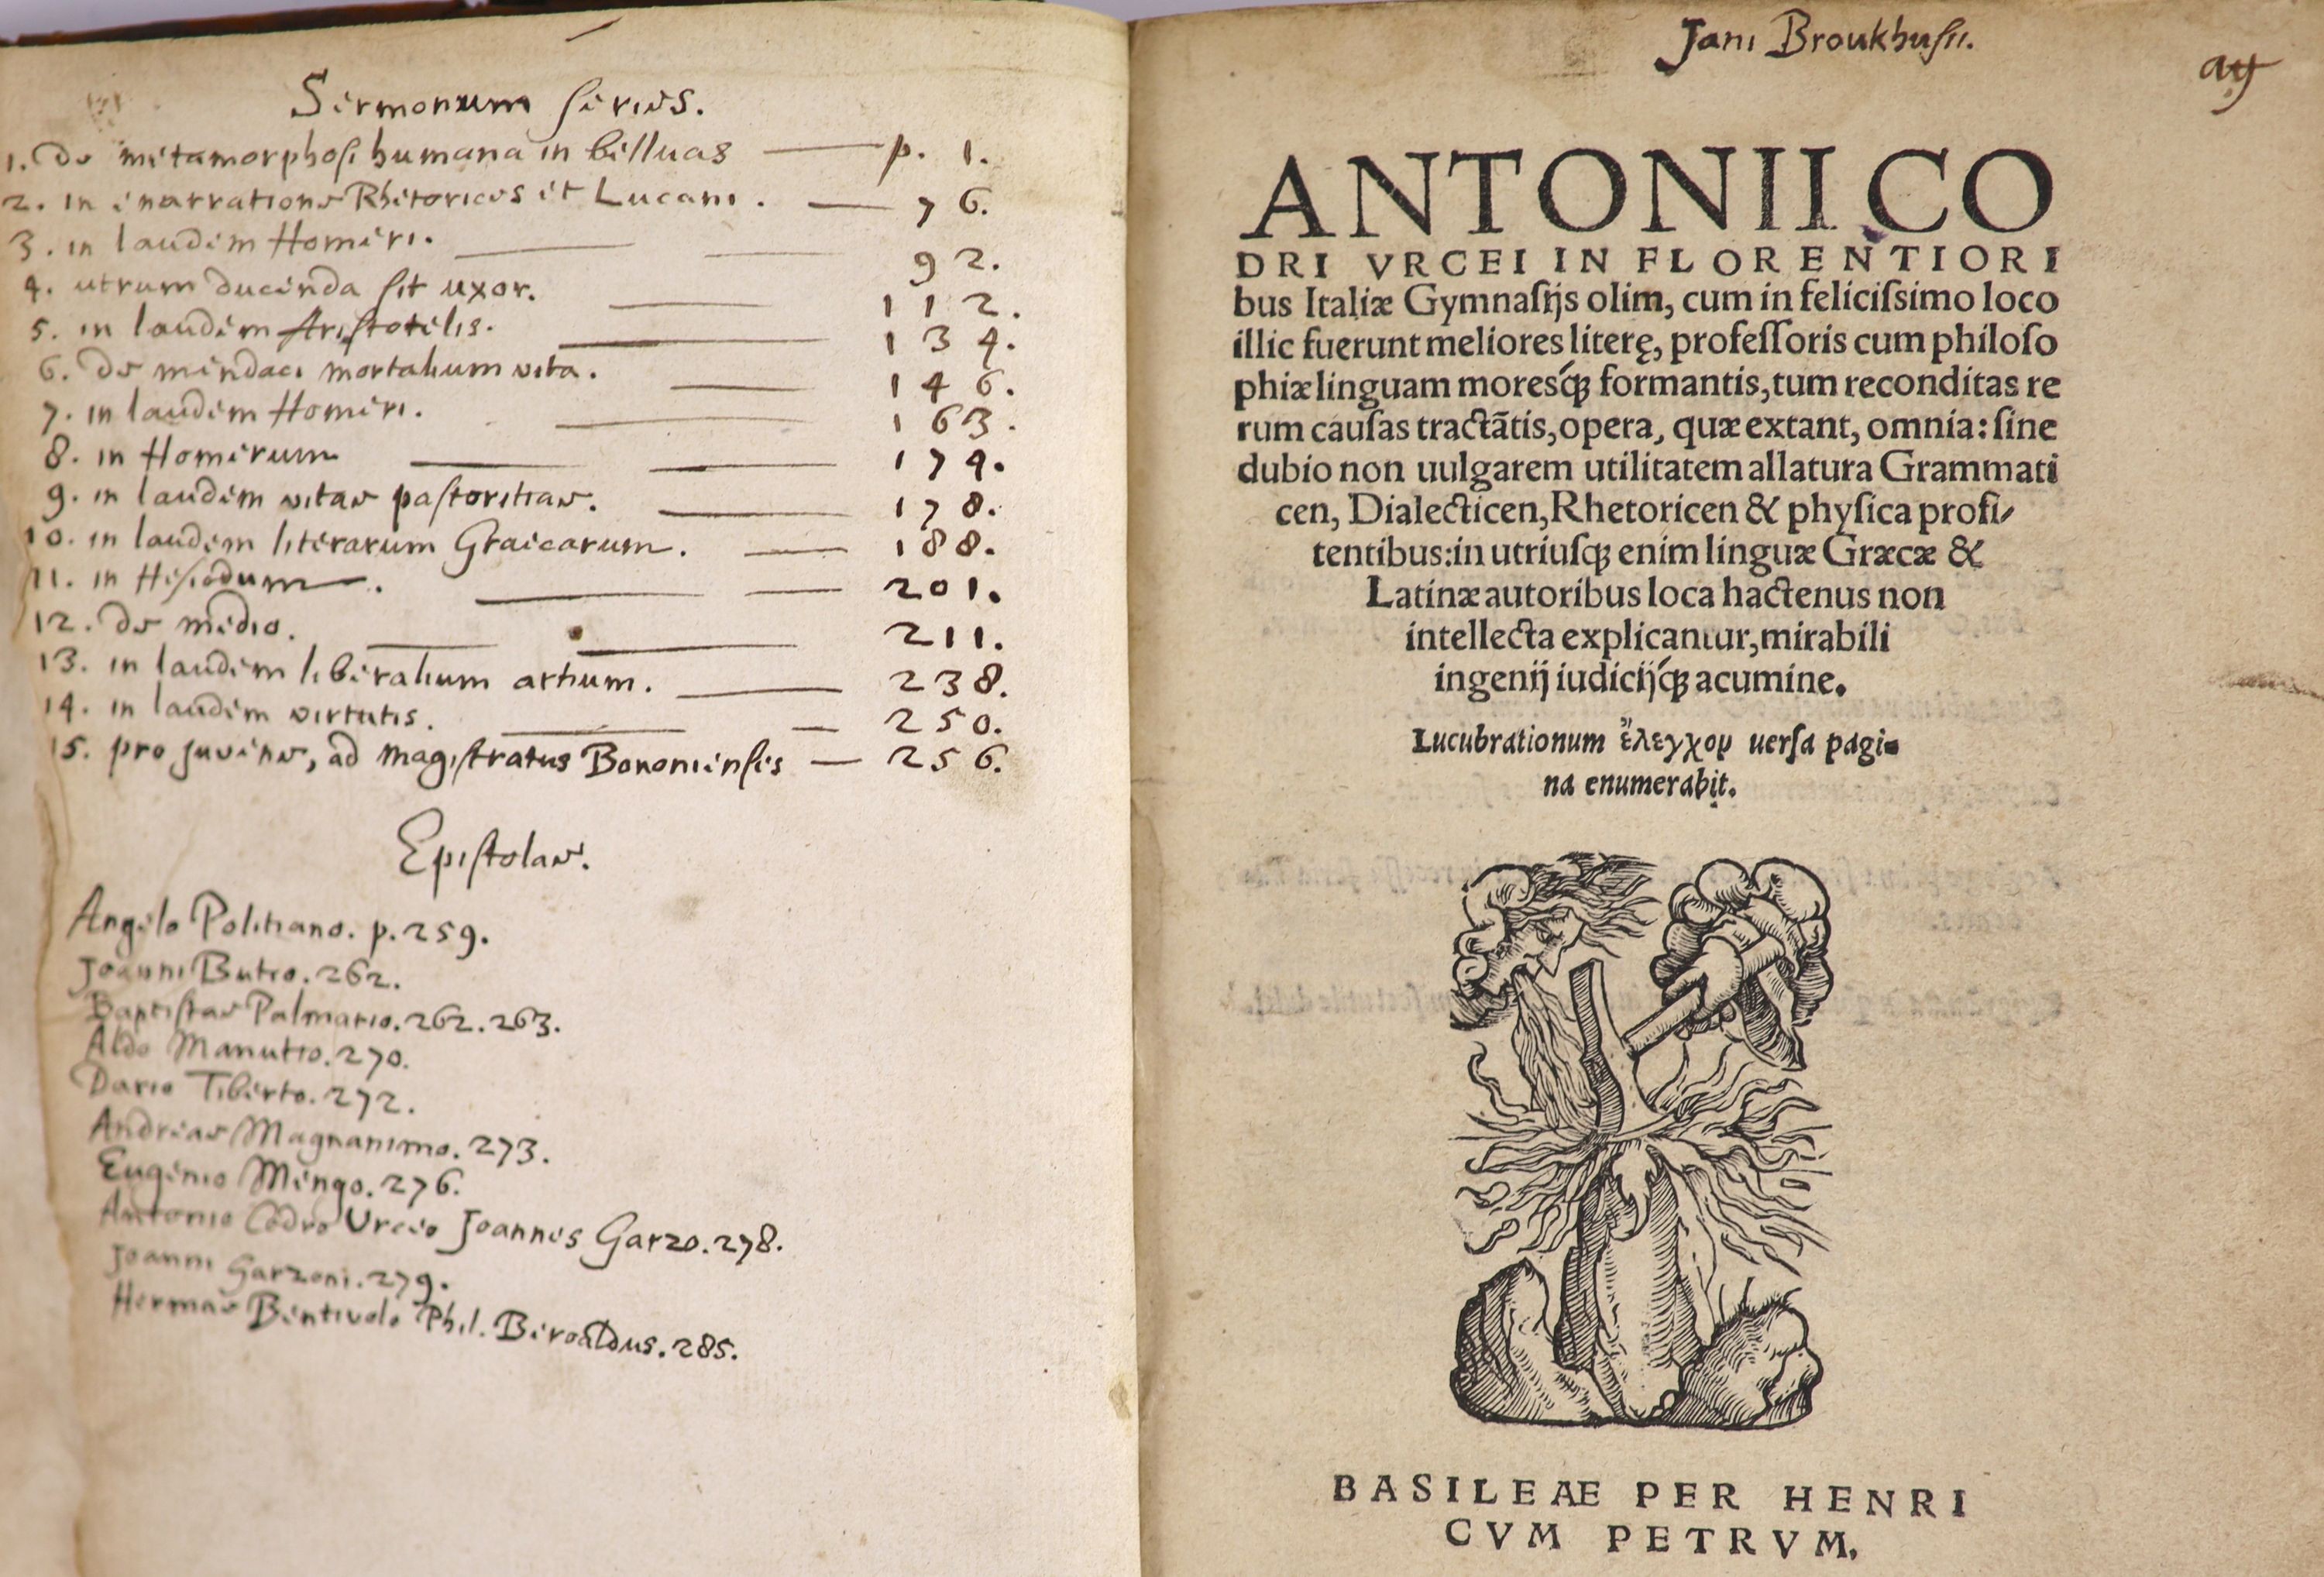 Sermonum series.
1. De metamorphosi humana in belluas — p. 1.
2. in enarratione Rhetorices et Lucani. — 76.
3. in laudem Homeri. — 92.
4. utrum ducenda sit uxor. — 112.
5. in laudem Aristotelis. — 134.
6. De mendaci mortalium vita. — 146.
7. in laudem Homeri. — 163.
8. in Homerum — 174.
9. in laudem vitae pastoritiae. — 178.
10. in laudem literarum Graecarum. — 188.
11. in Hesiodum. — 201.
12. De medio. — 211.
13. in laudem liberalium artium. — 238.
14. in laudem virtutis. — 250.
15. pro juvene, ad magistratus Bononienses — 256.
Epistolae.
Angelo Politiano. p. 259.
Joanni Buteo. 262.
Baptistae Palmario. 262. 263.
Aldo Manutio. 270.
Dario Tiberto. 272.
Andreae Magnanimo. 273.
Eugenio Mengo. 276.
Antonio Codro Urceo Joannes Garzo. 278.
Joanni Garzoni. 279.
Hermae Bentivolo Phil. Beroaldus. 285.
Jani Broukhusii.
ANTONII CO
DRI VRCEI IN FLORENTIORI
bus Italiæ Gymnasijs olim, cum in felicissimo loco
illic fuerunt meliores literę, professoris cum philoso
phiæ linguam moresq́ꝫ formantis, tum reconditas re
rum causas tractãtis, opera, quæ extant, omnia: sine
dubio non uulgarem utilitatem allatura Grammati
cen, Dialecticen, Rhetoricen & physica profi-
tentibus: in utriusqꝫ enim linguæ Græcæ &
Latinæ autoribus loca hactenus non
intellecta explicantur, mirabili
ingenij iudicijq́ꝫ acumine.
Lucubrationum ἔλεγχον uersa pagi-
na enumerabit.
BASILEAE PER HENRI
CVM PETRVM.